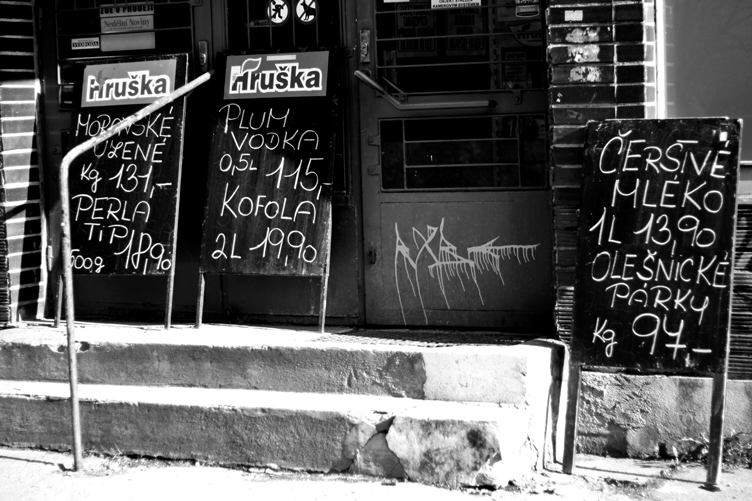 Nedělní Noviny
SVOBODA
Hruška
MORAVSKÉ
UZENÉ
Kg 131,-
PERLA
TIP 18,90
500g
Hruška
PLUM
VODKA
0,5L 115,-
KOFOLA
2L 19,90
ČERSTVÉ
MLÉKO
1L 13,90
OLEŠNICKÉ
PÁRKY
Kg 97,-